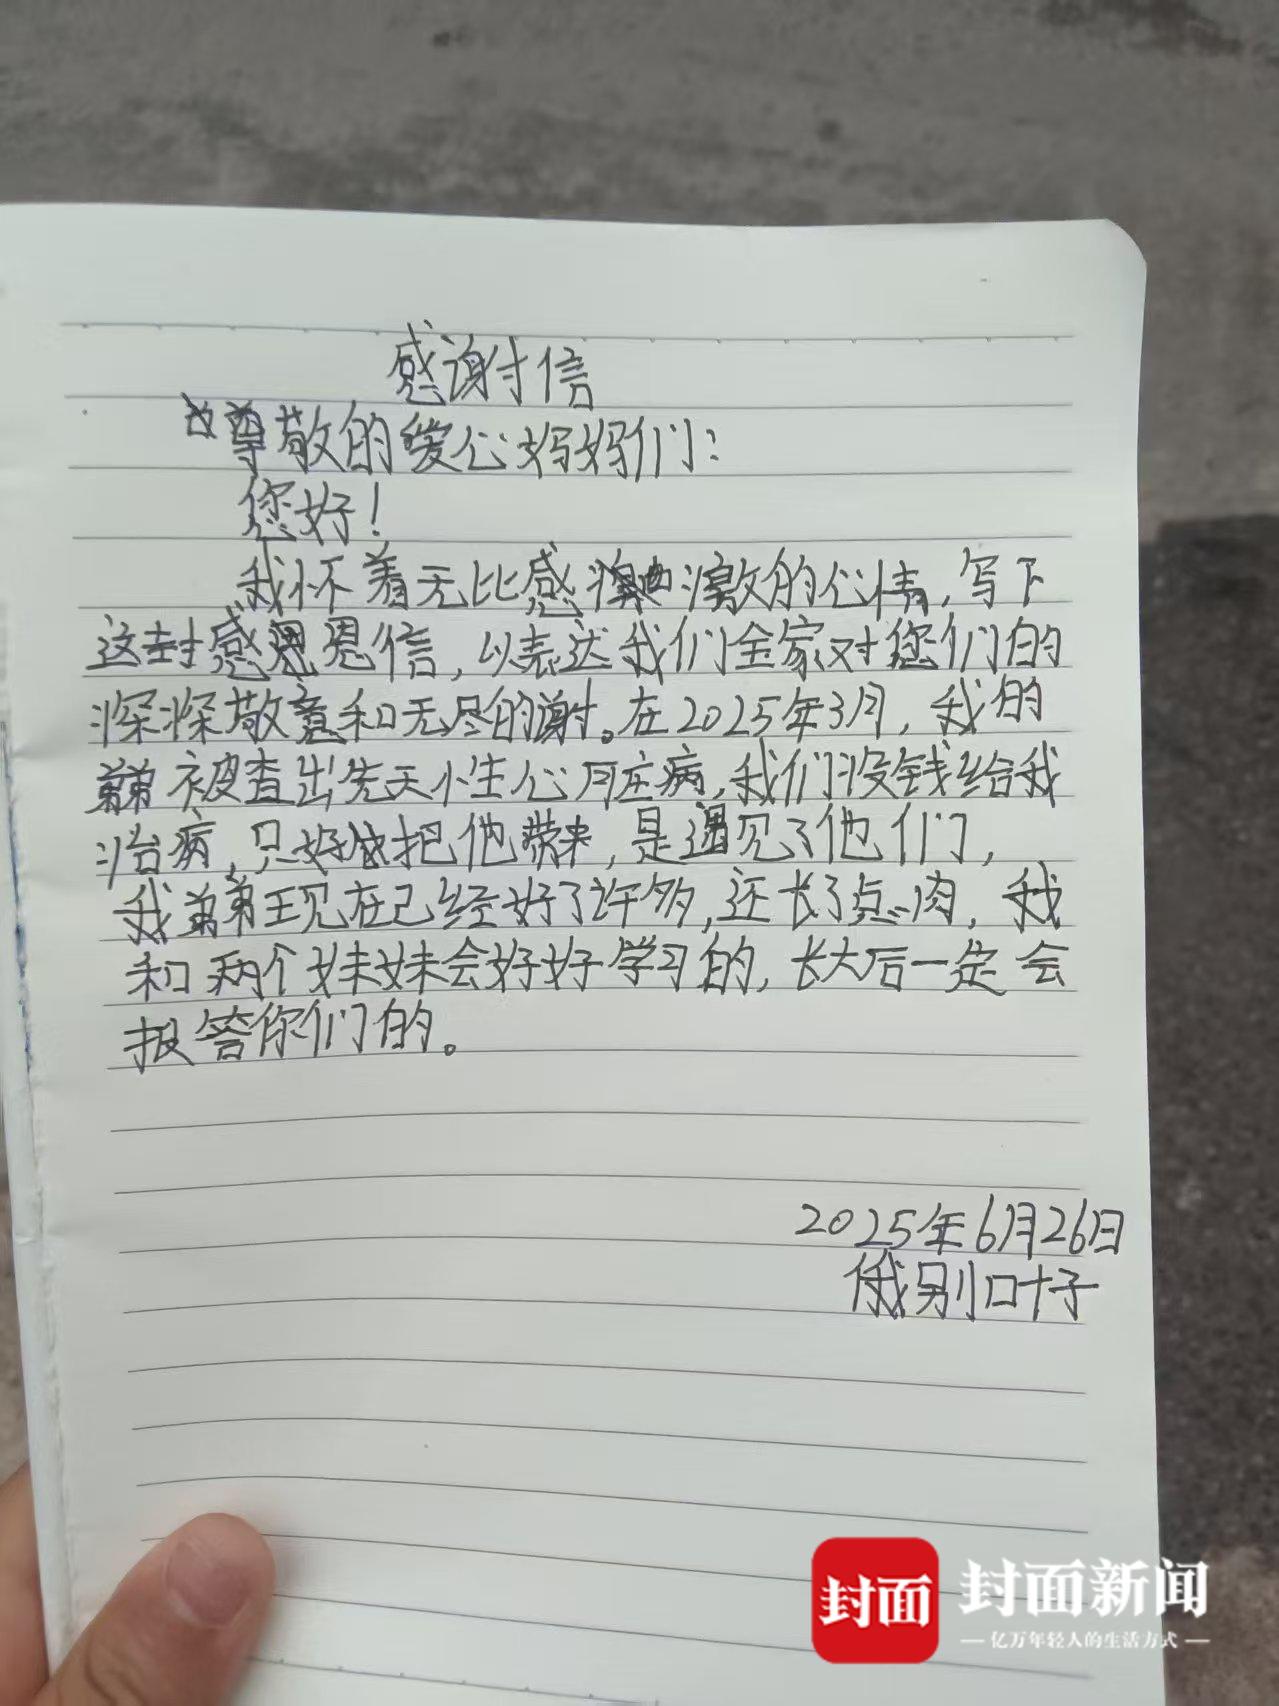 感谢信
尊敬的爱心妈妈们：
您好！
我怀着无比感激的心情，写下
这封感恩信，以表达我们全家对您们的
深深敬意和无尽的谢。在2025年3月，我的
弟弟被查出先天小生心脏病，我们没钱给我
治病，只好把他带来，是遇见了他们，
我弟弟现在已经好了许多，还长了点肉，我
和两个妹妹会好好学习的，长大后一定会
报答你们的。
2025年6月26日
俄别叶子
封面 封面新闻
亿万年轻人的生活方式